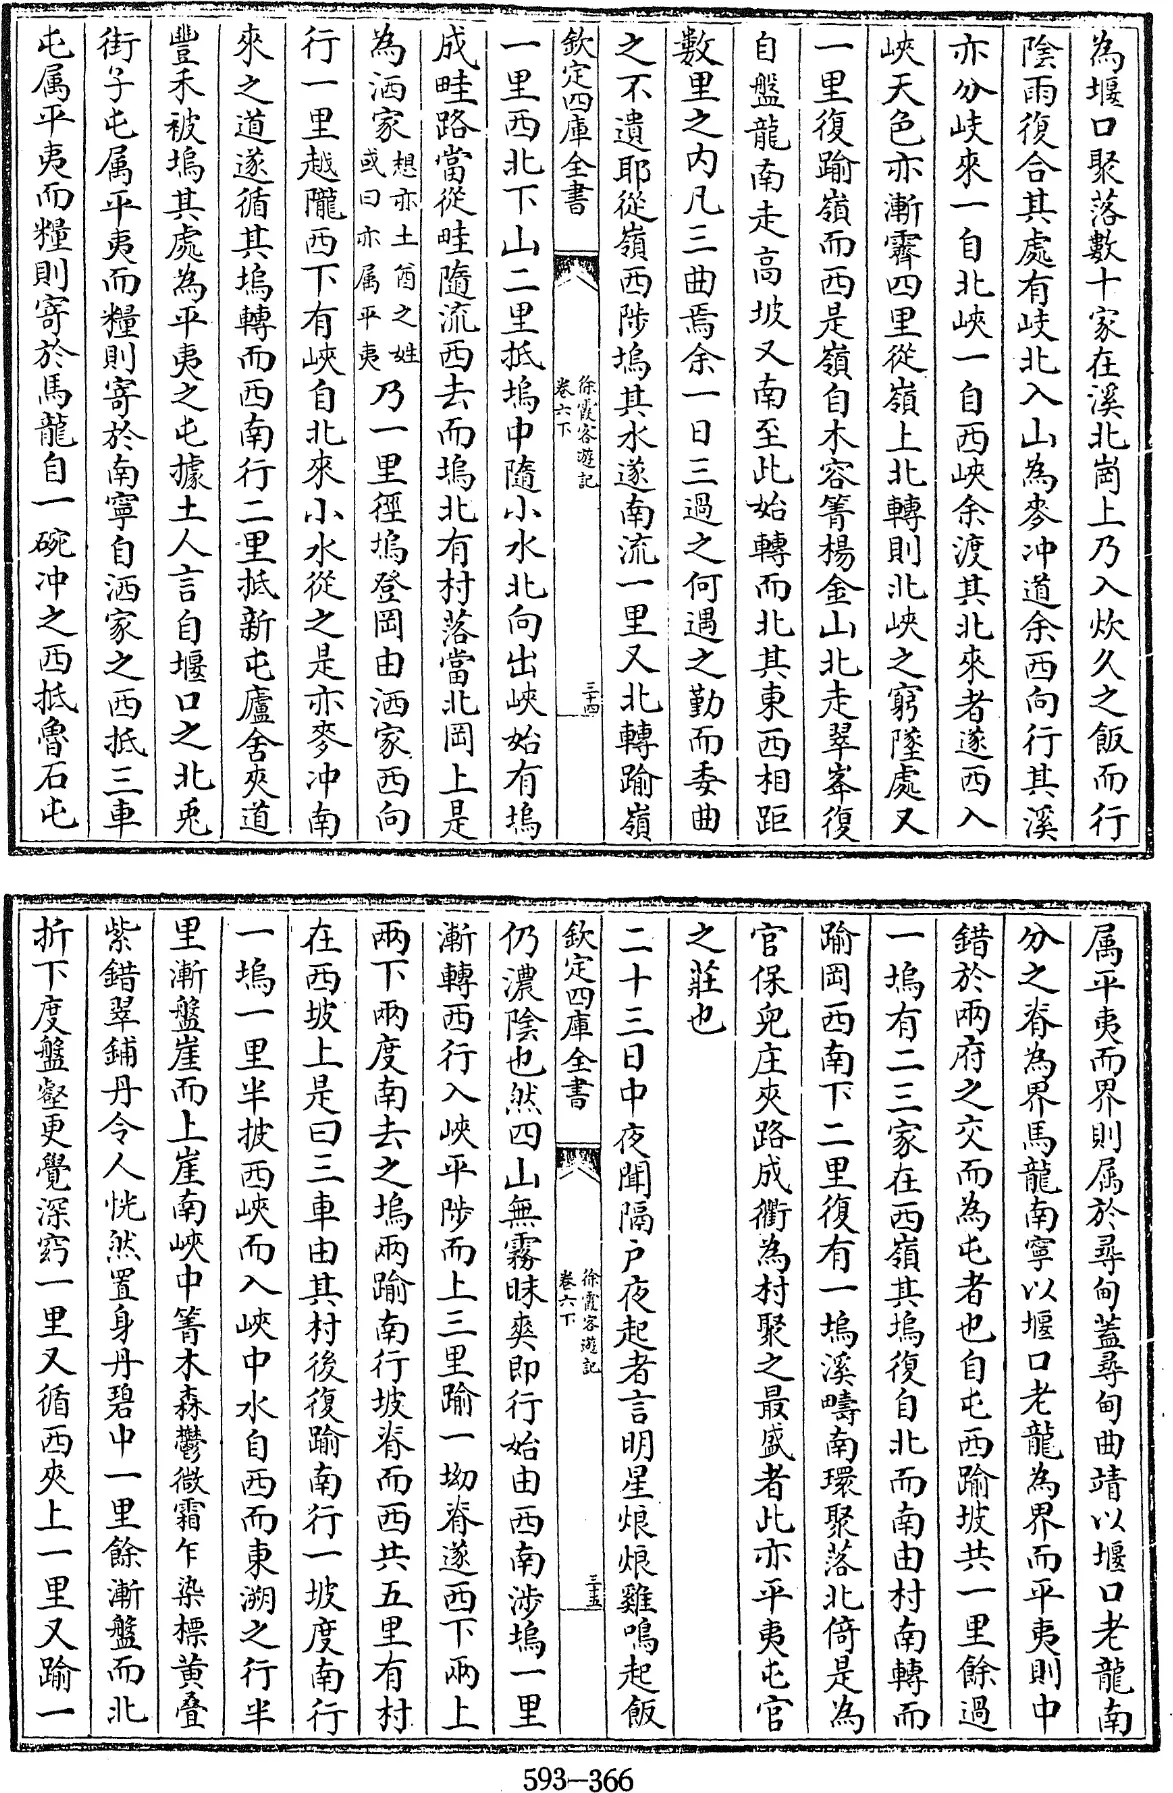 為堰口聚落數十家在溪北崗上乃入炊久之飯而行
陰雨復合其處有岐北入山為麥冲道余西向行其溪
亦分岐來一自北峽一自西峽余渡其北來者遂西入
峽天色亦漸霽四里從嶺上北轉則北峽之窮墜處又
一里復踰嶺而西是嶺自木容箐楊金山北走翠峯復
自盤龍南走高坡又南至此始轉而北其東西相距
數里之内凡三曲焉余一日三過之何遇之勤而委曲
之不遺耶從嶺西陟塢其水遂南流一里又北轉踰嶺
欽定四庫全書
徐霞客遊記
卷六下
三十四
一里西北下山二里抵塢中隨小水北向出峽始有塢
成畦路當從畦隨流西去而塢北有村落當北岡上是
為洒家想亦土酋之姓或曰亦属平夷乃一里徑塢登岡由洒家西向
行一里越隴西下有峽自北來小水從之是亦麥冲南
來之道遂循其塢轉而西南行二里抵新屯廬舍夾道
豐禾被塢其處為平夷之屯據土人言自堰口之北兎
街子屯属平夷而糧則寄於南寧自洒家之西抵三車
屯属平夷而糧則寄於馬龍自一碗冲之西抵魯石屯
属平夷而界則属於尋甸蓋尋甸曲靖以堰口老龍南
分之脊為界馬龍南寧以堰口老龍為界而平夷則中
錯於兩府之交而為屯者也自屯西踰坡共一里餘過
一塢有二三家在西嶺其塢復自北而南由村南轉而
踰岡西南下二里復有一塢溪疇南環聚落北倚是為
官保兒庄夾路成衢為村聚之最盛者此亦平夷屯官
之莊也
二十三日中夜聞隔户夜起者言明星烺烺雞鳴起飯
欽定四庫全書
徐霞客遊記
卷六下
三十五
仍濃陰也然四山無霧昧爽即行始由西南涉塢一里
漸轉西行入峽平陟而上三里踰一坳脊遂西下兩上
兩下兩度南去之塢兩踰南行坡脊而西共五里有村
在西坡上是曰三車由其村後復踰南行一坡度南行
一塢一里半披西峽而入峽中水自西而東溯之行半
里漸盤崖而上崖南峽中箐木森鬱微霜乍染標黄叠
紫錯翠鋪丹令人恍然置身丹碧中一里餘漸盤而北
折下度盤壑更覺深窈一里又循西夾上一里又踰一
593-366